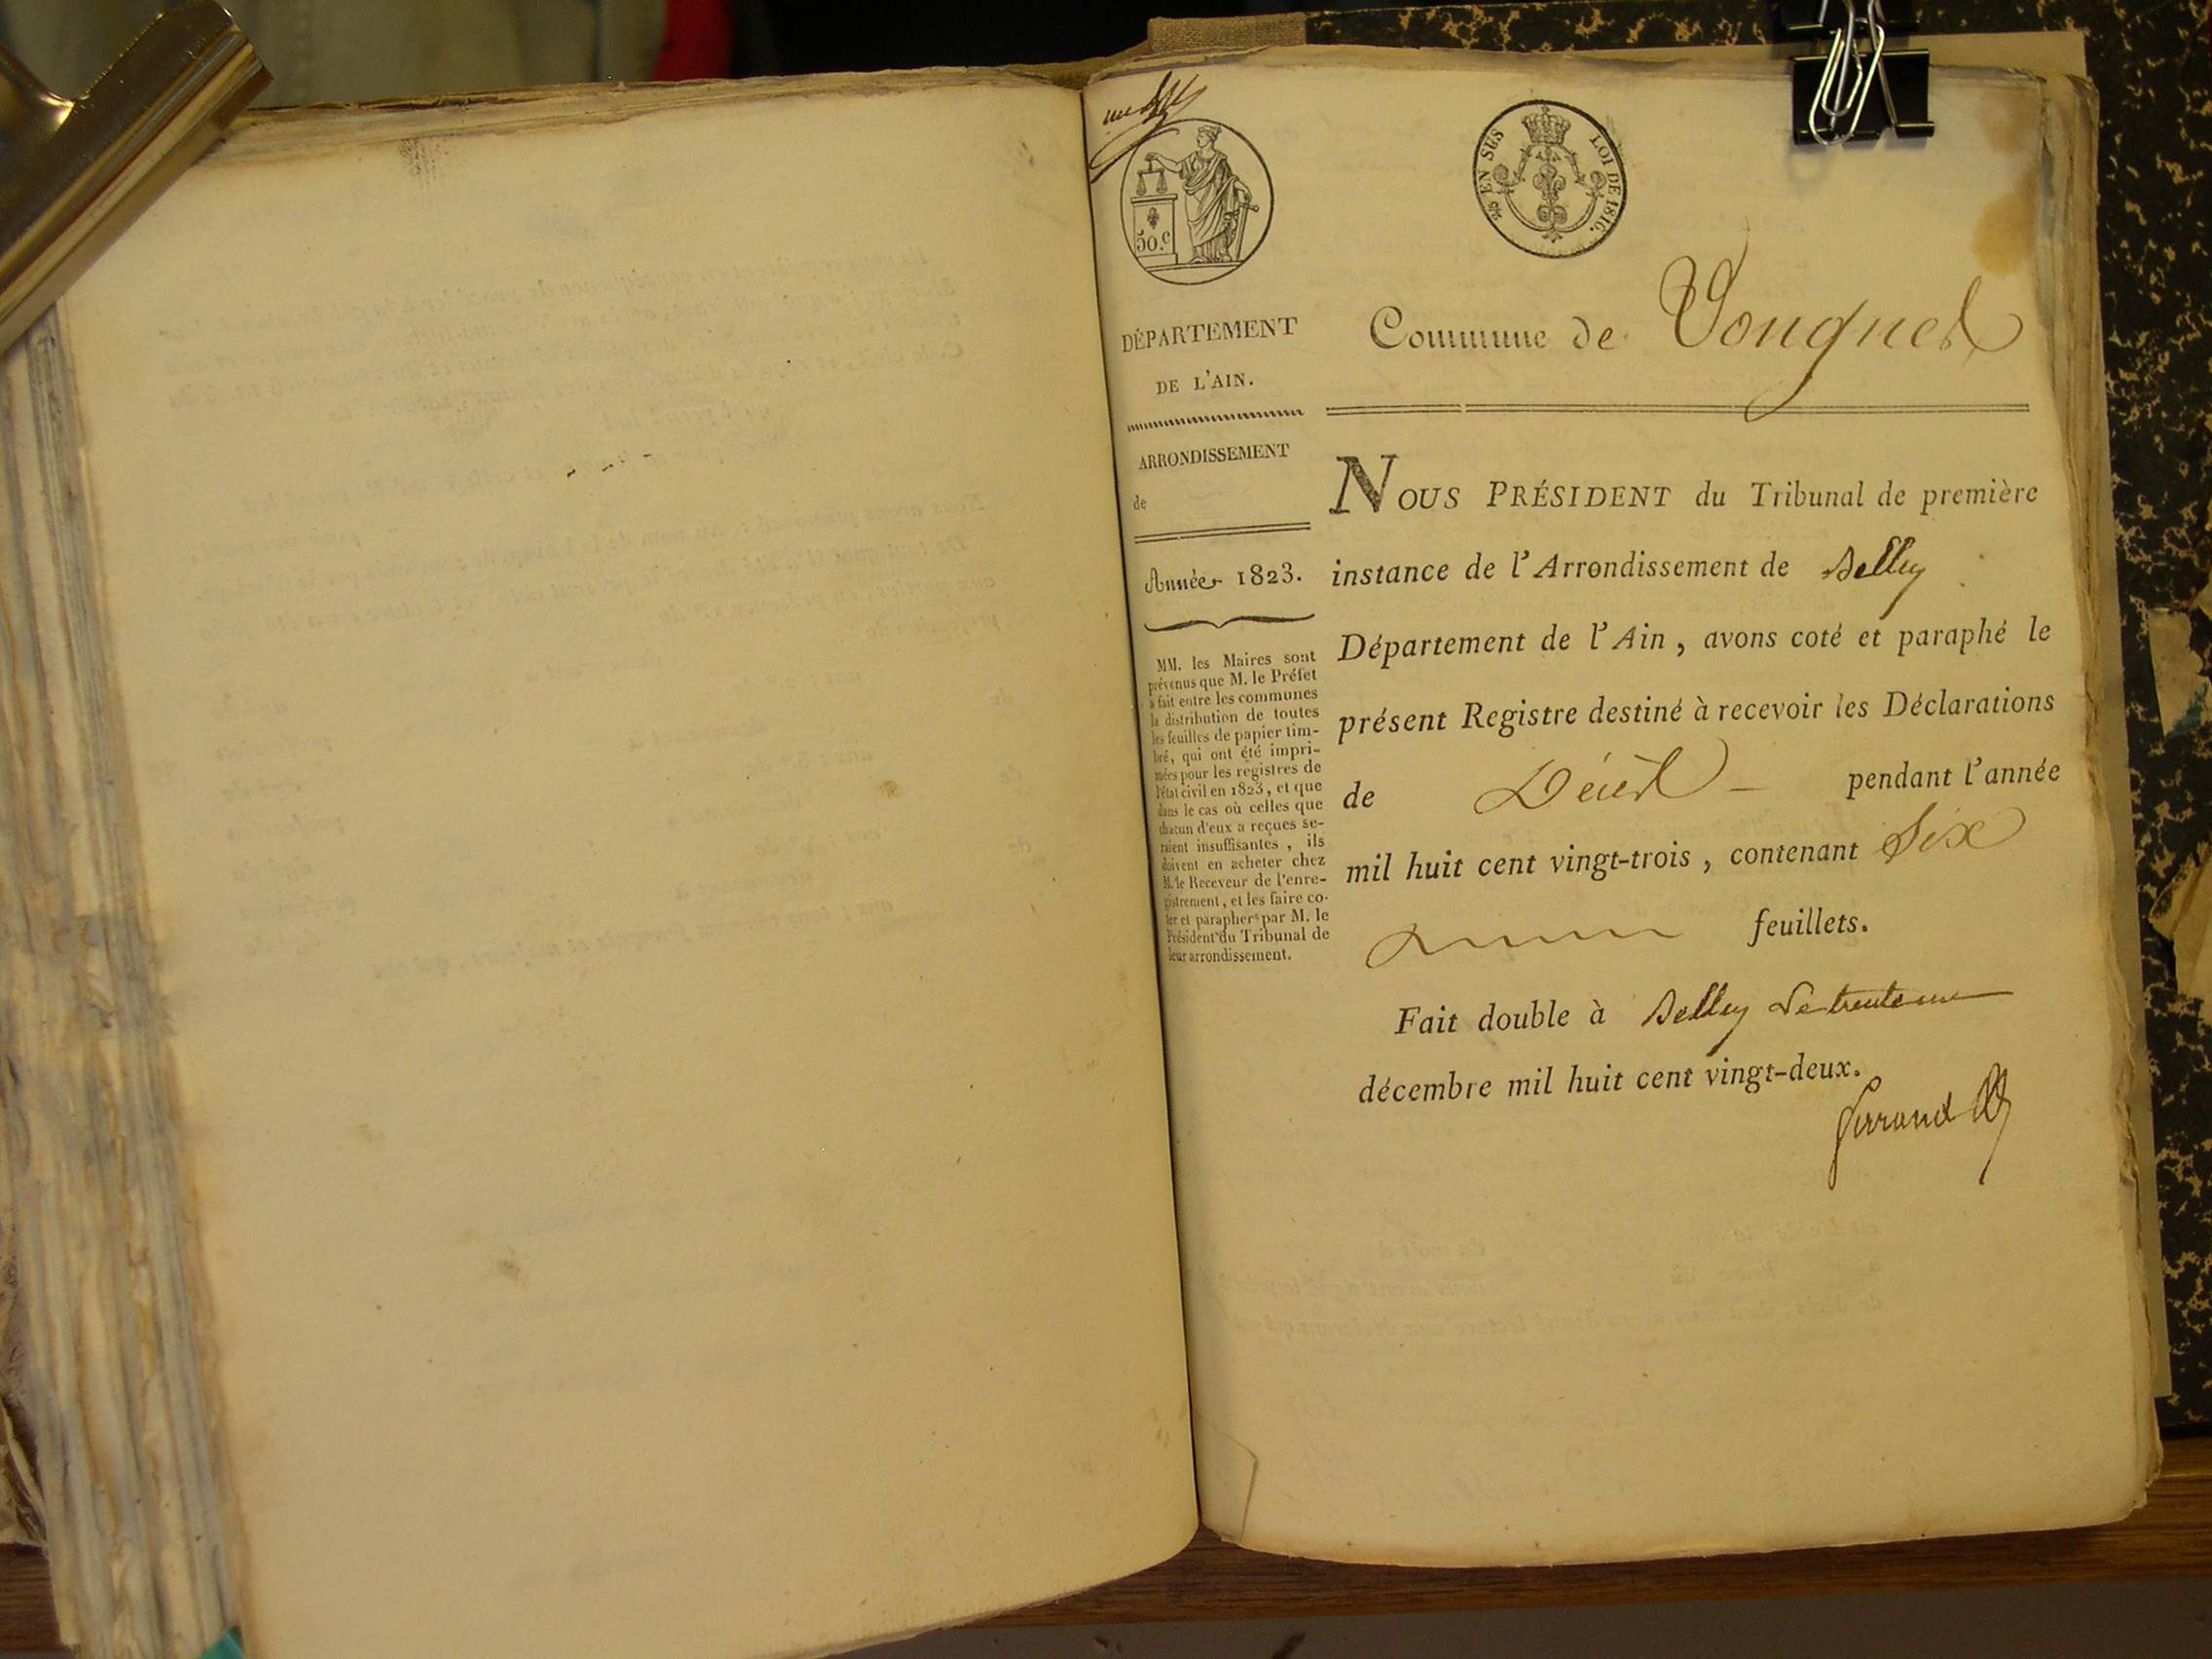 50.c
¼ EN SUS LOI DE 1816.
DÉPARTEMENT
DE L'AIN.
ARRONDISSEMENT
de
Année 1823.
MM. les Maires sont
prévenus que M. le Préfet
a fait entre les communes
la distribution de toutes
les feuilles de papier tim-
bré, qui ont été impri-
mées pour les registres de
l'état civil en 1823, et que
dans le cas où celles que
chacun d'eux a reçues se-
raient insuffisantes, ils
doivent en acheter chez
M. le Receveur de l'enre-
gistrement, et les faire co-
ter et parapher par M. le
Président du Tribunal de
leur arrondissement.
Commune de Vongnes
NOUS PRÉSIDENT du Tribunal de première
instance de l'Arrondissement de Belley
Département de l'Ain, avons coté et paraphé le
présent Registre destiné à recevoir les Déclarations
de Décès pendant l'année
mil huit cent vingt-trois, contenant Six
feuillets.
Fait double à Belley Le trente un
décembre mil huit cent vingt-deux.